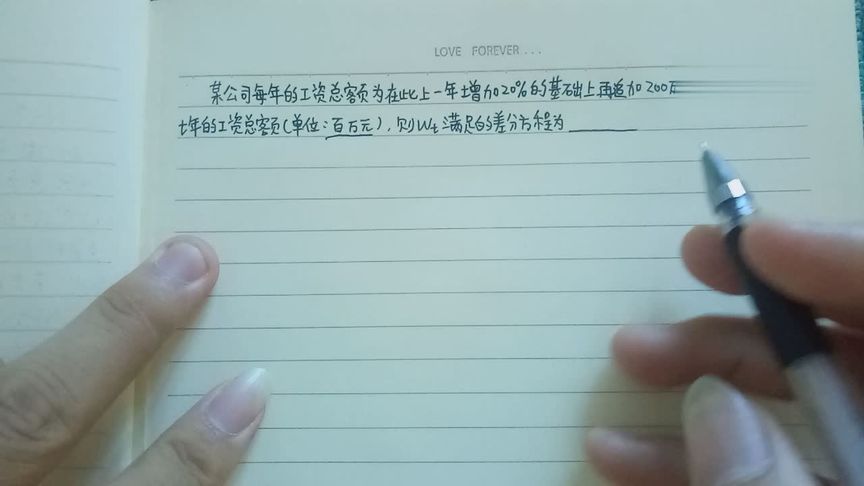 LOVE FOREVER...
某公司每年的工资总额为在比上一年增加20%的基础上再追加200万
t年的工资总额(单位:百万元),则Wt满足的差分方程为